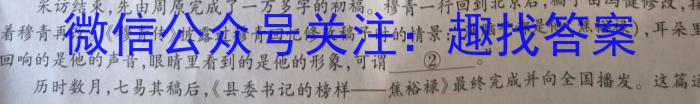 采访结束,先由周原完成了一万多字的初稿。穆青一行回到北京后,稿子由冯健修改,接
着穆青再
微信公众号关注:趣找答案
耳朵里
回响的是他的声音,眼睛里看到的是他的形象,可谓②。
历时数月,七易其稿后,《县委书记的榜样——焦裕禄》最终完成并向全国播发。这篇通